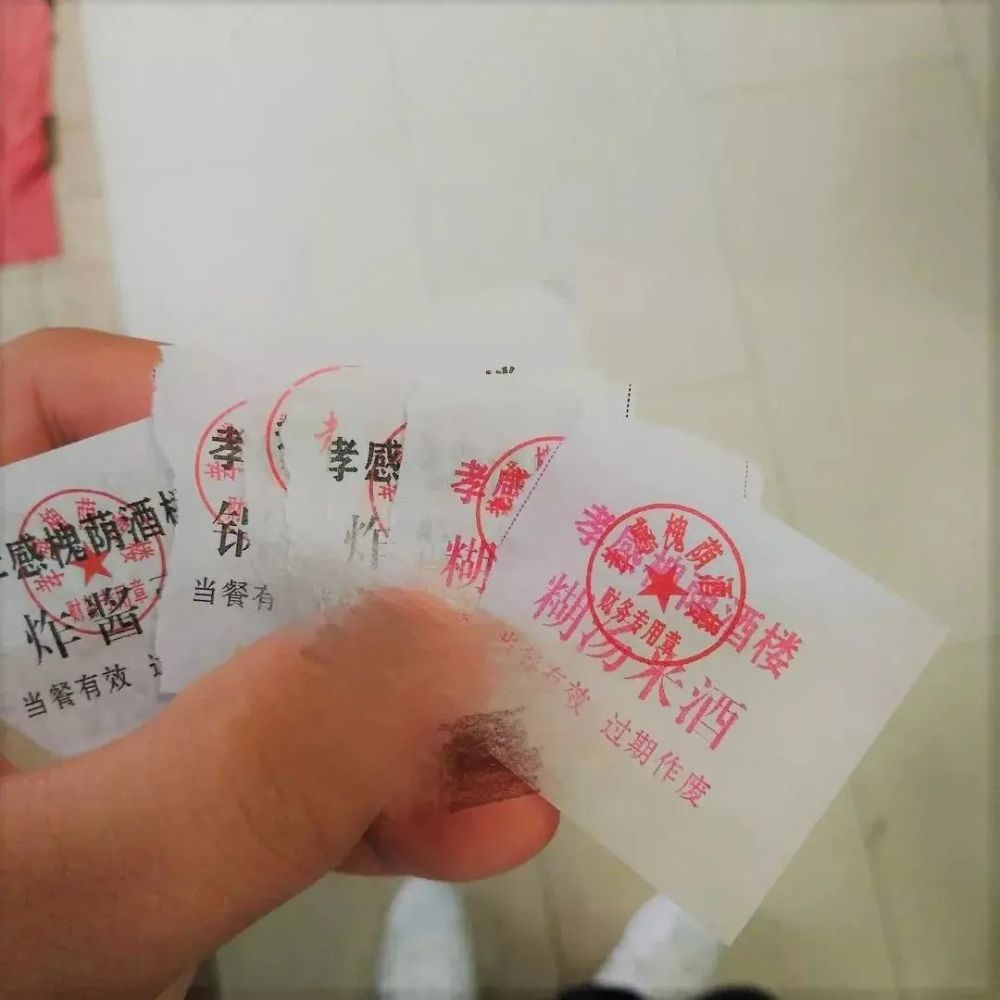 感槐荫酒楼
炸酱
当餐有效
孝
当餐有
孝感
炸
孝
糊
孝感槐荫酒楼
糊汤米酒
当餐有效 过期作废
槐荫酒
财务专用章